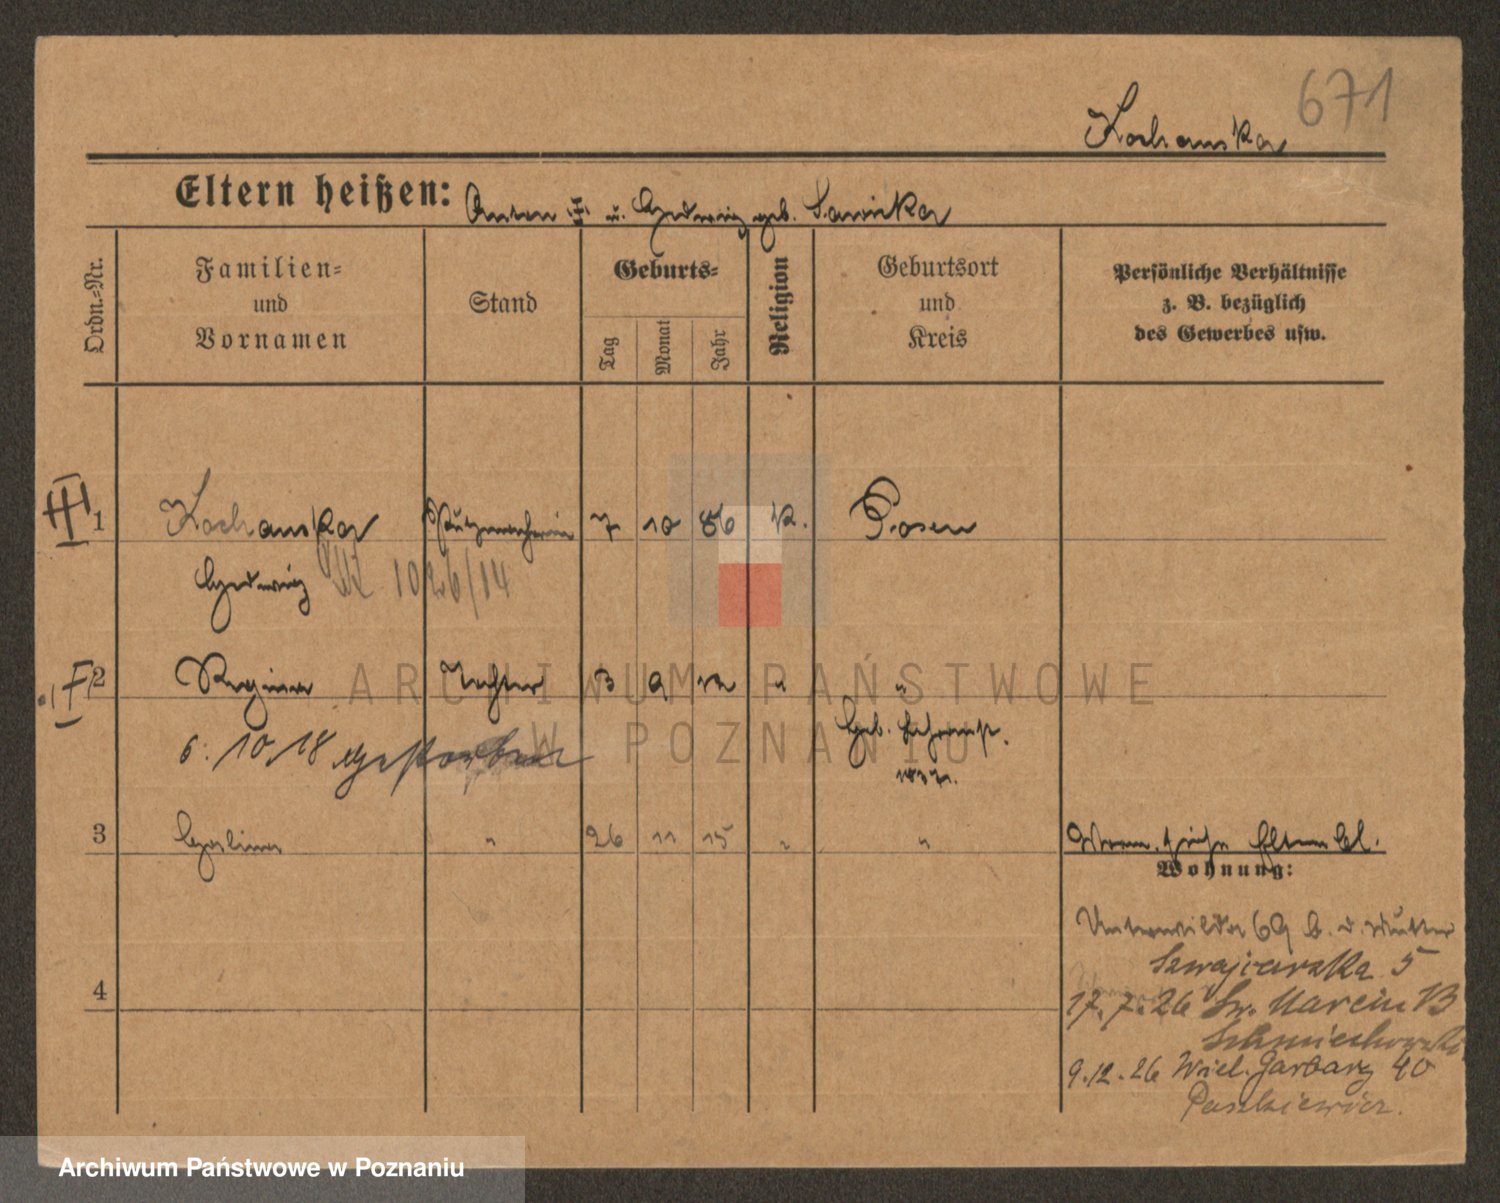 671
Kochanska
Eltern heißen: Anton u. Hedwig geb. Sawicka
Ordn.=Nr.
Familien=
und
Vornamen
Stand
Geburts=
Tag
Monat
Jahr
Religion
Geburtsort
und
Kreis
Persönliche Verhältnisse
z. B. bezüglich
des Gewerbes usw.
1 Kochanska Putzmacherin 7 10 86 k. Posen
Hedwig 1026/14
2 Regina Tochter 3 9 12 " "
6. 10. 18 gestorben
Geb.
3 Halina " 26 11 15 " "
Verm. siehe Elternbl.
Wohnung:
Unterwilda 69 b. d. Mutter
Szwajcarska 5
4
17. 7. 26 Św. Marcin 13
9. 12. 26 Wiel. Garbary 40
Paszkiewicz.
ARCHIWUM PAŃSTWOWE
W POZNANIU
Archiwum Państwowe w Poznaniu